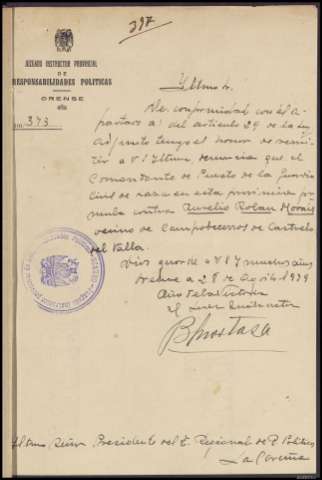 397
JUZGADO INSTRUCTOR PROVINCIAL
DE
RESPONSABILIDADES POLITICAS
ORENSE
Núm. 373
Iltmo Sr.
De conformidad con el a-
partado a) del articulo 29 de la Ley
tengo el honor de remi-
tir a V. Iltma denuncia que el
Comandante de Puesto de la Guardia
Civil de en esta provincia
contra Aurelio Rolan Morais
vecino de Campobecerros de Castrelo
del Valle.
Dios guarde a V I muchos años
Orense a 28 de Agosto 1939
Año de la Victoria
El Juez Instructor
Iltmo. Señor Presidente del T. Regional de R. Politicas
La Coruña